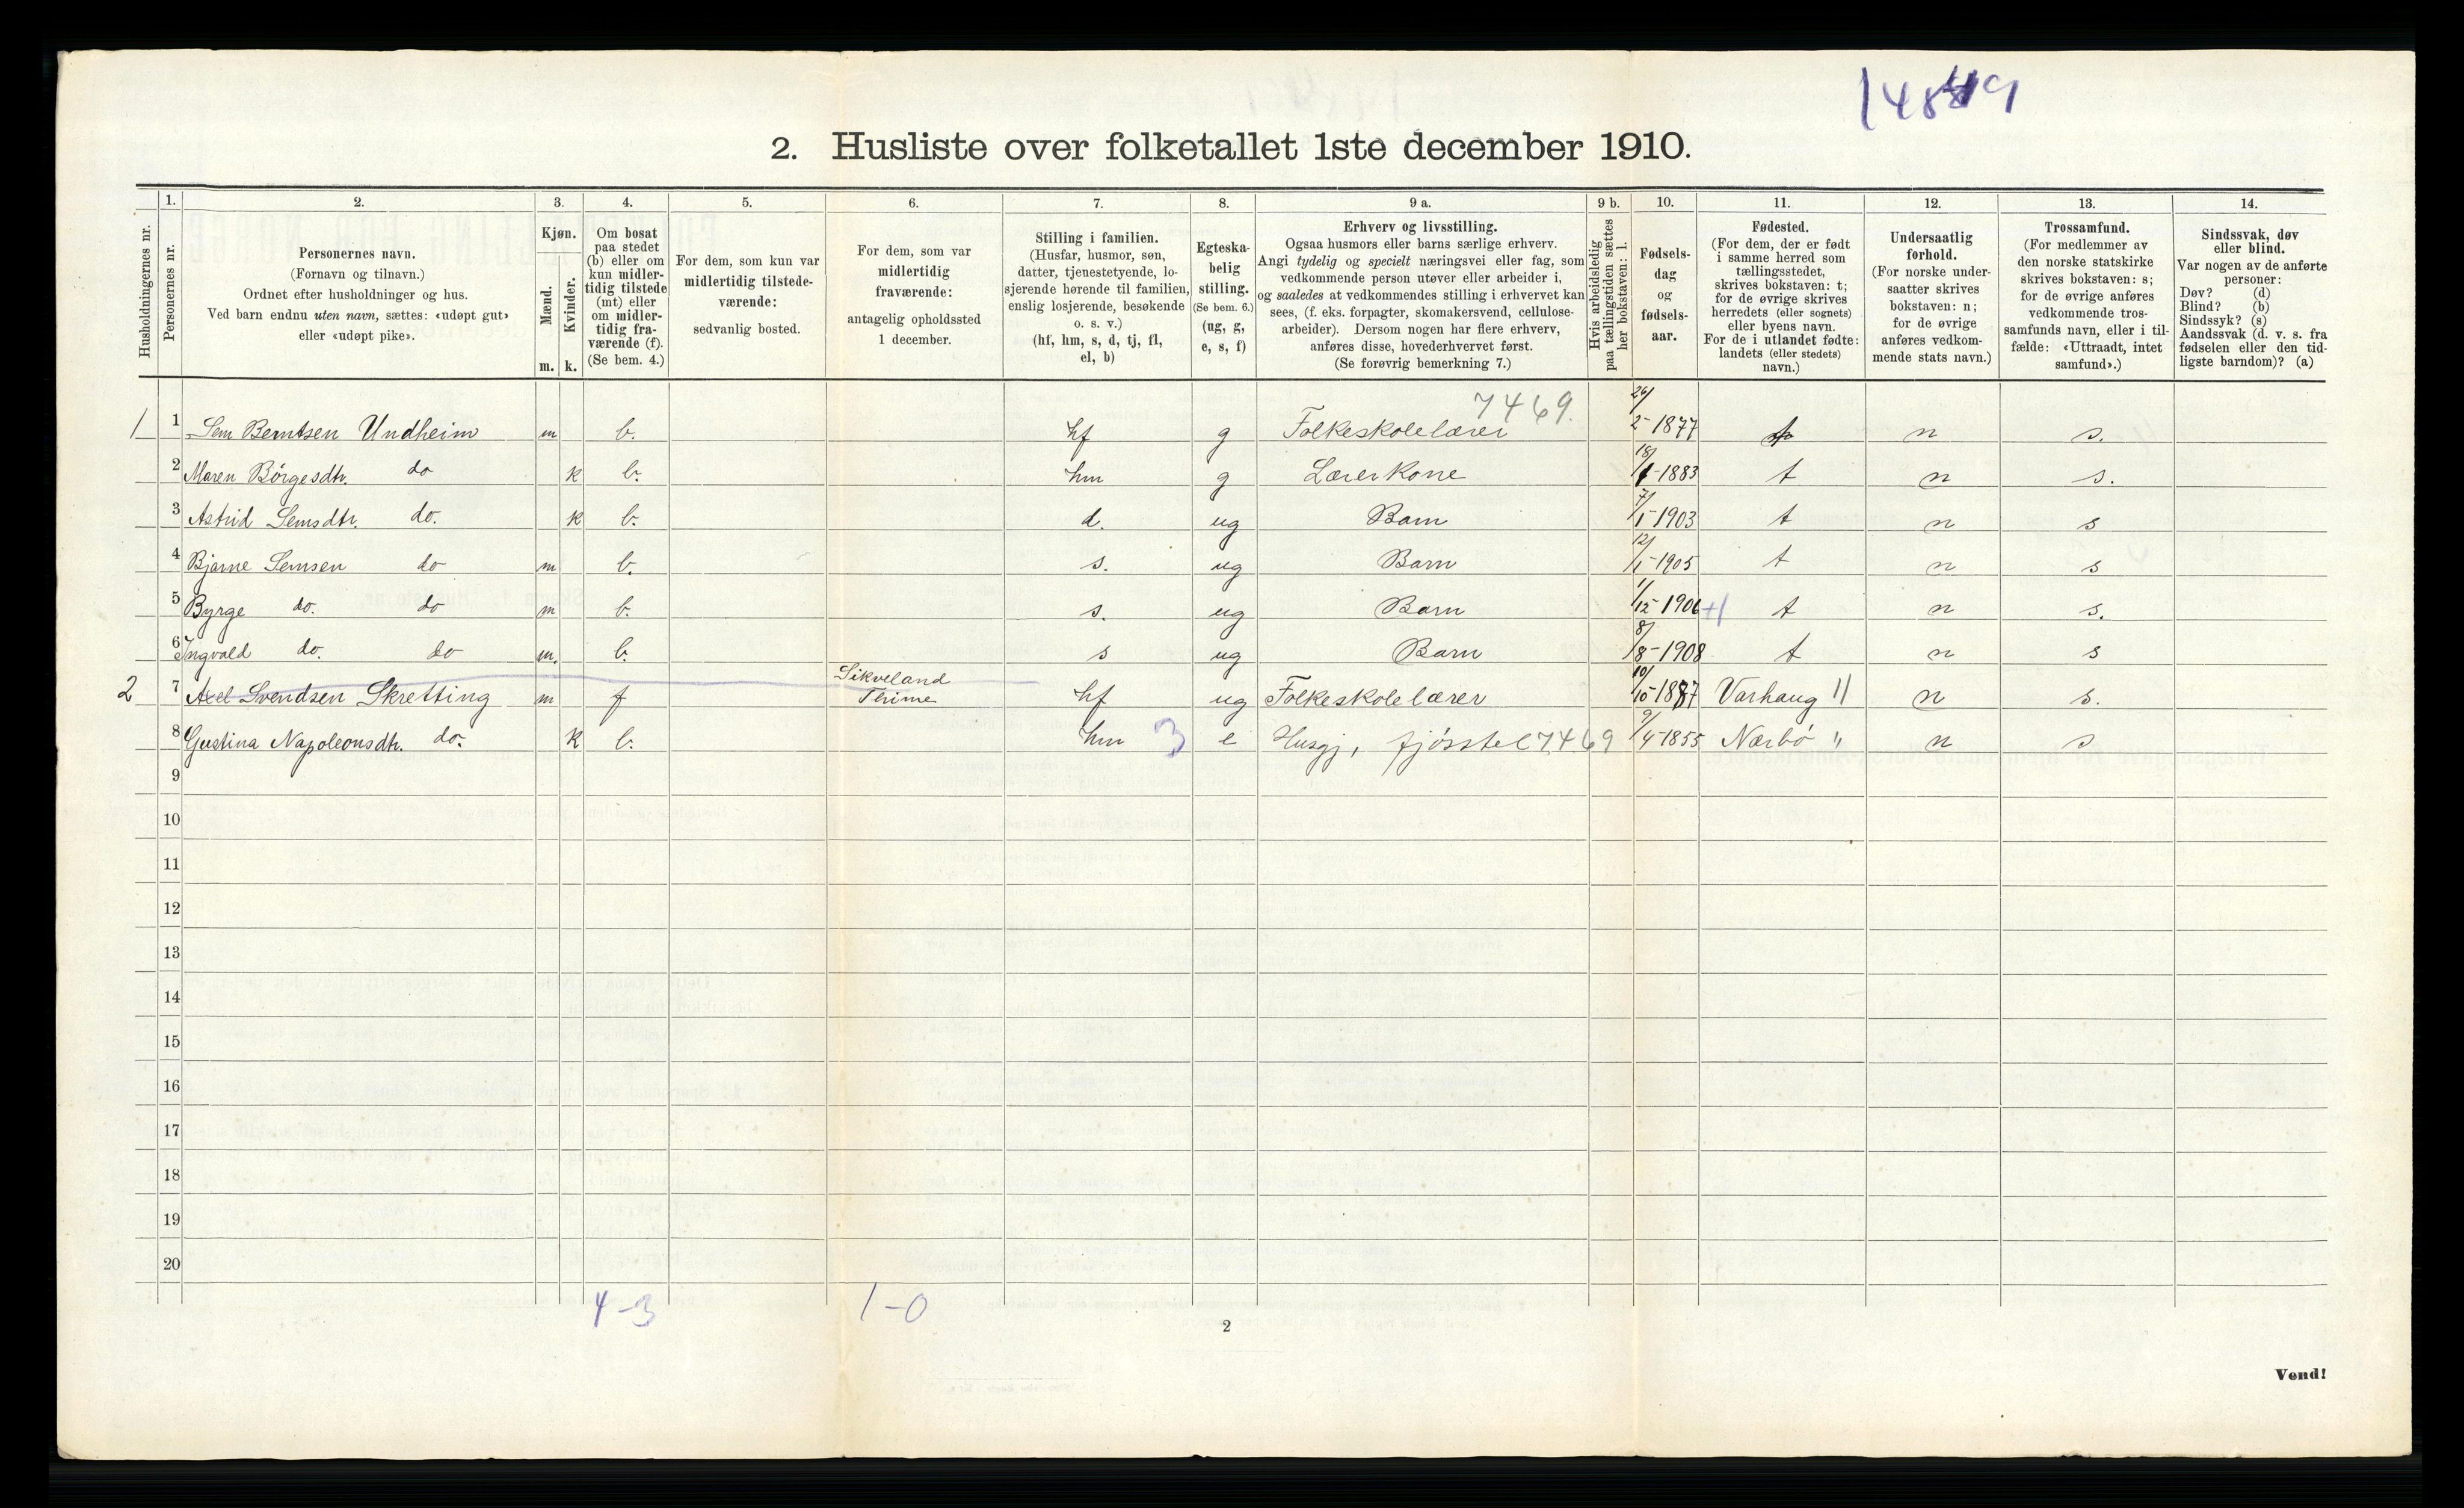 148549
2. Husliste over folketallet 1ste december 1910.
Husholdningernes nr.
1.
Personernes nr.
2.
Personernes navn.
(Fornavn og tilnavn.)
Ordnet efter husholdninger og hus.
Ved barn endnu uten navn, sættes: «udøpt gut»
eller «udøpt pike».
3.
Kjøn.
Mænd.
Kvinder.
m. k.
4.
Om bosat
paa stedet
(b) eller om
kun midler-
tidig tilstede
(mt) eller
om midler-
tidig fra-
værende (f).
(Se bem. 4.)
5.
For dem, som kun var
midlertidig tilstede-
værende:
sedvanlig bosted.
6.
For dem, som var
midlertidig
fraværende:
antagelig opholdssted
1 december.
7.
Stilling i familien.
(Husfar, husmor, søn,
datter, tjenestetyende, lo-
sjerende hørende til familien,
enslig losjerende, besøkende
o. s. v.)
(hf, hm, s, d, tj, fl,
el, b)
8.
Egteska-
belig
stilling.
(Se bem. 6.)
(ug, g,
e, s, f)
9 a.
Erhverv og livsstilling.
Ogsaa husmors eller barns særlige erhverv.
Angi tydelig og specielt næringsvei eller fag, som
vedkommende person utøver eller arbeider i,
og saaledes at vedkommendes stilling i erhvervet kan
sees, (f. eks. forpagter, skomakersvend, cellulose-
arbeider). Dersom nogen har flere erhverv,
anføres disse, hovederhvervet først.
(Se forøvrig bemerkning 7.)
9 b.
Hvis arbeidsledig
paa tællingstiden sættes
her bokstaven: l.
10.
Fødsels-
dag
og
fødsels-
aar.
11.
Fødested.
(For dem, der er født
i samme herred som
tællingsstedet,
skrives bokstaven: t;
for de øvrige skrives
herredets (eller sognets)
eller byens navn.
For de i utlandet fødte:
landets (eller stedets)
navn.)
12.
Undersaatlig
forhold.
(For norske under-
saatter skrives
bokstaven: n;
for de øvrige
anføres vedkom-
mende stats navn.)
13.
Trossamfund.
(For medlemmer av
den norske statskirke
skrives bokstaven: s;
for de øvrige anføres
vedkommende tros-
samfunds navn, eller i til-
fælde: «Uttraadt, intet
samfund».)
14.
Sindssvak, døv
eller blind.
Var nogen av de anførte
personer:
Døv? (d)
Blind? (b)
Sindssyk? (s)
Aandssvak (d. v. s. fra
fødselen eller den tid-
ligste barndom)? (a)
7469.
1 1 Sem Berntsen Undheim m b. hf g Folkeskolelærer 26/2-1877 t n s.
2 Maren Börgesdtr. do k b. hm g Lærerkone 18/1-1883 t n s.
3 Astrid Semsdtr. do. k b. d. ug Barn 7/1-1903 t n s
4 Bjarne Semsen do m b. s. ug Barn 12/1-1905 t n s
5 Byrge do. do m b. s. ug Barn 1/12-1906 +1 t n s.
6 Ingvald do. do m. b. s ug Barn 8/8-1908 t n s
2 7 Axel Svendsen Skretting m f Sikveland Thime hf ug Folkeskolelærer 10/10-1887 Varhaug 11 n s.
8 Gustina Napoleonsdtr. do. k b. hm 3 e Husgj, fjösstel 7469 9/4-1855 Nærbö " n s
9
10
11
12
13
14
15
16
17
18
19
20
4-3 1-0
2
Vend!